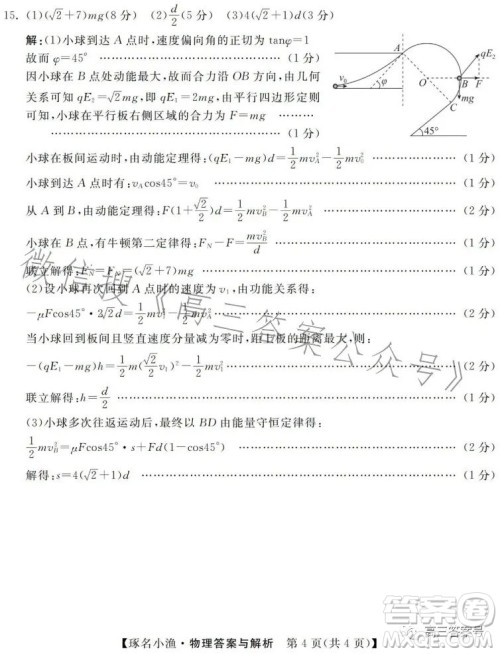 15. (1)(√2+7)mg(8分)　(2)d/2(5分)　(3)4(√2+1)d(3分)
解:(1)小球到达A点时,速度偏向角的正切为tanφ=1
故而φ=45° ……………………………… (1分)
因小球在B点处动能最大,故而合力沿OB方向,由几何
关系可知qE₂=√2mg,即qE₁=2mg,由平行四边形定则
可知,小球在平行板右侧区域的合力为F=mg ………
……………………………………………… (1分)
小球在板间运动时,由动能定理得:(qE₁-mg)d=1/2mv_A²-1/2mv₀² ……………… (1分)
小球到达A点时有:v_Acos45°=v₀ ……………… (1分)
从A到B,由动能定理得:F(1+√2/2)d=1/2mv_B²-1/2mv_A² ……………… (2分)
小球在B点,有牛顿第二定律得:F_N-F=mv_B²/d ……………… (1分)
联立解得:F_N=(√2+7)mg ……………… (1分)
(2)设小球再次回到A点时的速度为v₁,由功能定理得:
-μFcos45°·3√2d=1/2mv₁²-1/2mv_A² ……………… (2分)
当小球回到板间且竖直速度分量为零时,距上板的距离最大,则:
-(qE₁-mg)h=1/2m(√2/2v₁)²-1/2mv₁² ……………… (2分)
联立解得:h=d/2 ……………… (1分)
(3)小球多次往返运动后,最终以BD由能量守恒定律得:
1/2mv_B²=μFcos45°·s+Fd(1-cos45°) ……………… (2分)
解得:s=4(√2+1)d ……………… (1分)
A
v₀
φ
O
B
F
qE₂
mg
C
45°
微信搜《高三答案公众号》
【琢名小渔·物理答案与解析　第4页(共4页)】
高三答案号
答案圈